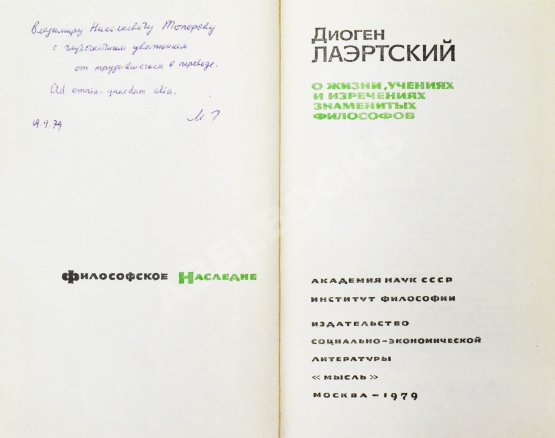 Владимиру Николаевичу Топорову
с глубочайшим уважением
от трудившегося о переводе.
Ad omnia quaedam alia.
19.9.79
М Г
Философское Наследие
Диоген
ЛАЭРТСКИЙ
О ЖИЗНИ, УЧЕНИЯХ
И ИЗРЕЧЕНИЯХ
ЗНАМЕНИТЫХ
ФИЛОСОФОВ
АКАДЕМИЯ НАУК СССР
ИНСТИТУТ ФИЛОСОФИИ
ИЗДАТЕЛЬСТВО
СОЦИАЛЬНО-ЭКОНОМИЧЕСКОЙ
ЛИТЕРАТУРЫ
«МЫСЛЬ»
МОСКВА — 1979